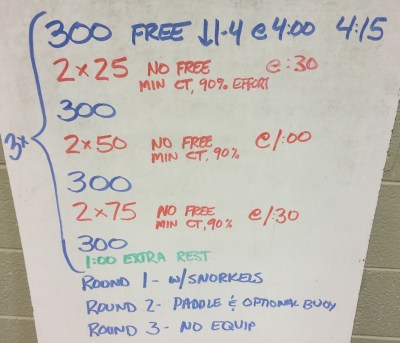 3x
300 FREE ↓1-4 @ 4:00 4:15
2x25 NO FREE @ :30
MIN CT, 90% EFFORT
300
2x50 NO FREE @ 1:00
MIN CT, 90%
300
2x75 NO FREE @ 1:30
MIN CT, 90%
300
1:00 EXTRA REST
ROUND 1- W/SNORKELS
ROUND 2- PADDLE & OPTIONAL BUOY
ROUND 3- NO EQUIP